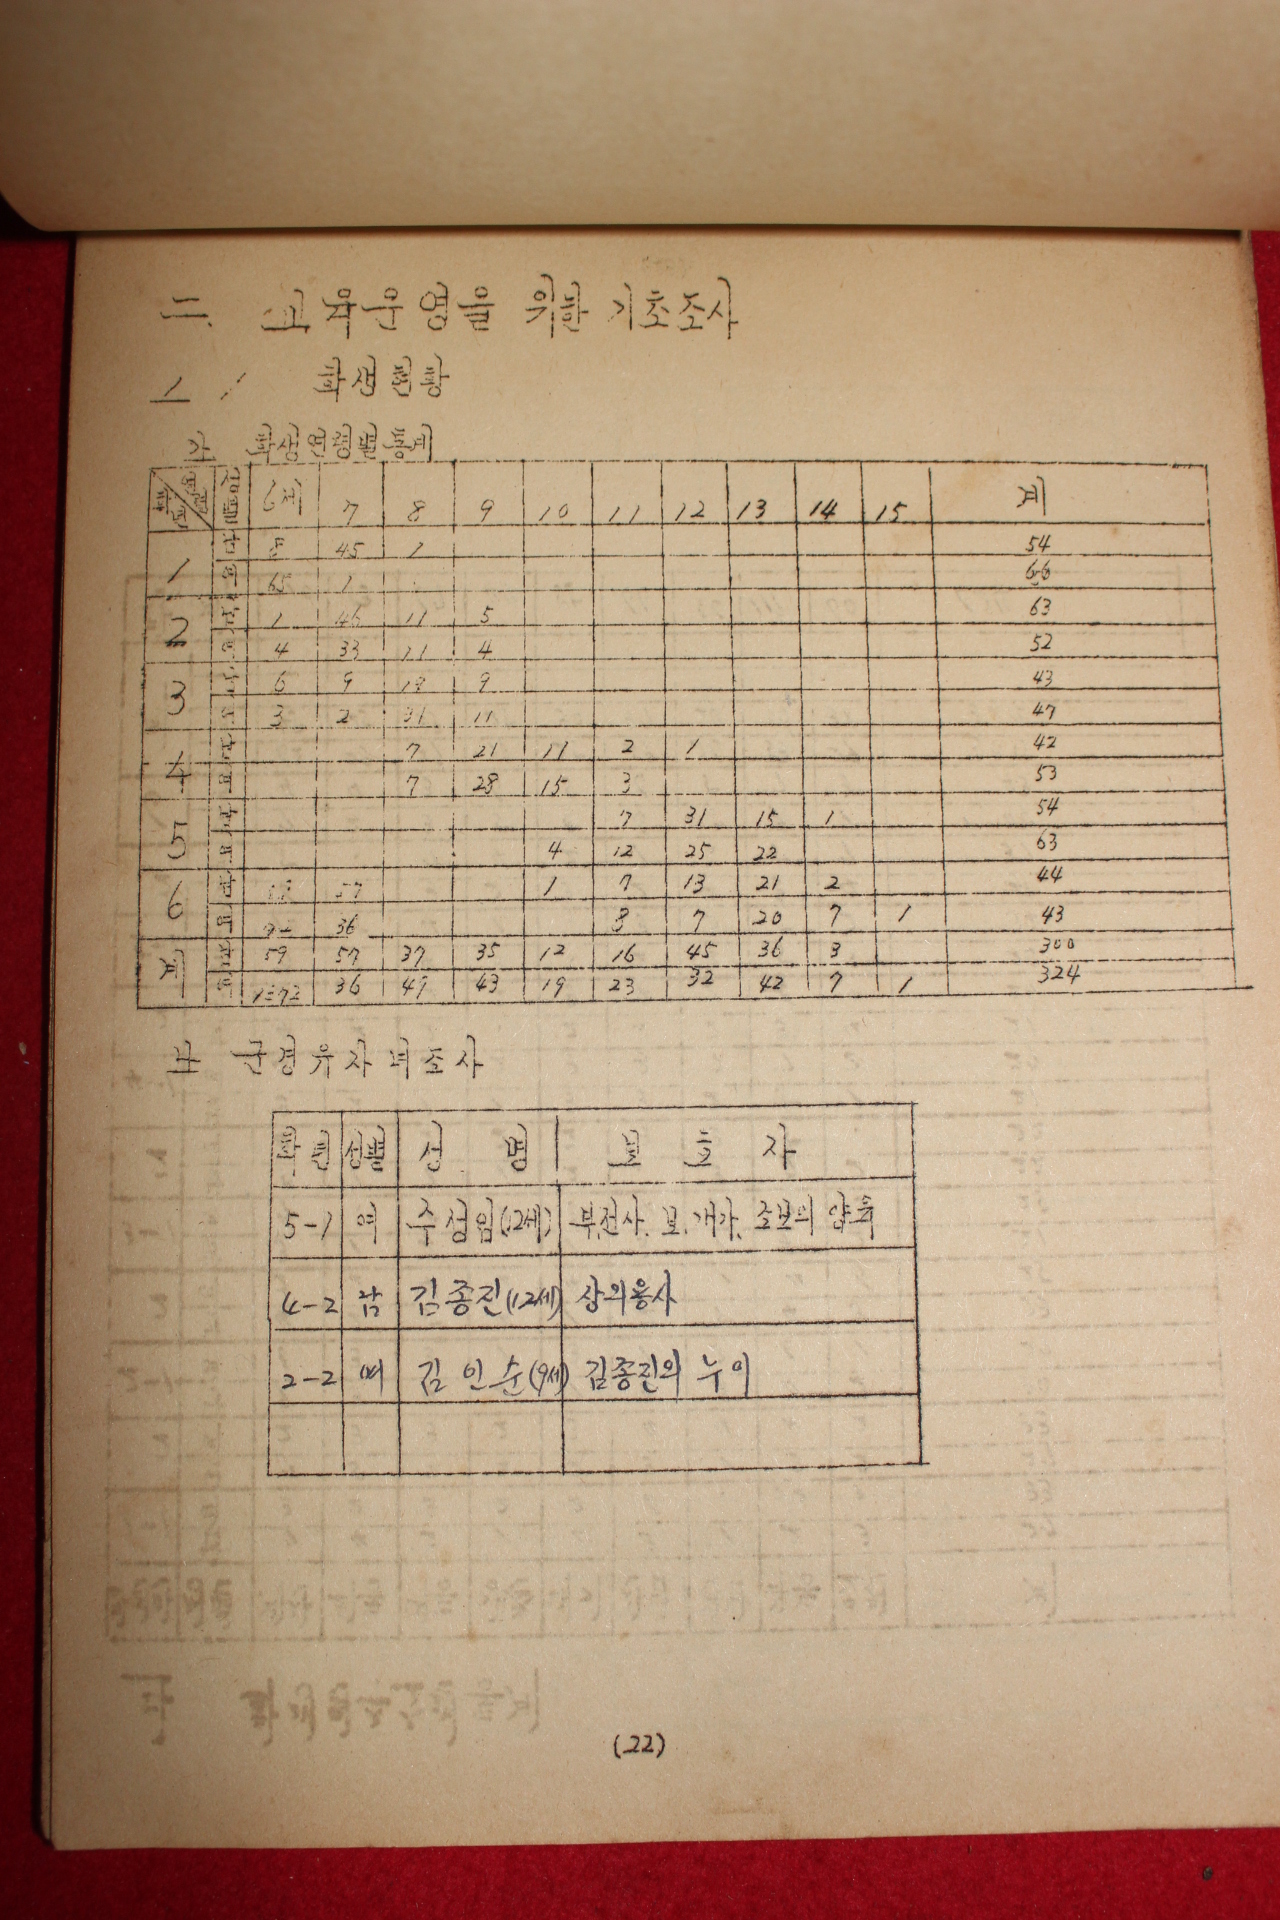 二. 교육운영을 위한 기초조사
1 학생현황
가 학생연령별통계
학년 연령 성별 6세 7 8 9 10 11 12 13 14 15 계
1 남 8 45 1 54
여 65 1 66
2 남 1 46 11 5 63
여 4 33 11 4 52
3 남 6 9 19 9 43
여 3 2 31 11 47
4 남 7 21 11 2 1 42
여 7 28 15 3 53
5 남 7 31 15 1 54
여 4 12 25 22 63
6 남 57 1 7 13 21 2 44
여 36 8 7 20 7 1 43
계 남 59 57 37 35 12 16 45 36 3 300
여 72 36 49 43 19 23 32 42 7 1 324
나 군경유자녀조사
학년 성별 성 명 보 호 자
5-1 여 주성임(12세) 부.전사. 모.개가. 조모의 양육
4-2 남 김종진(12세) 상의용사
2-2 여 김인순(9세) 김종진의 누이
(22)